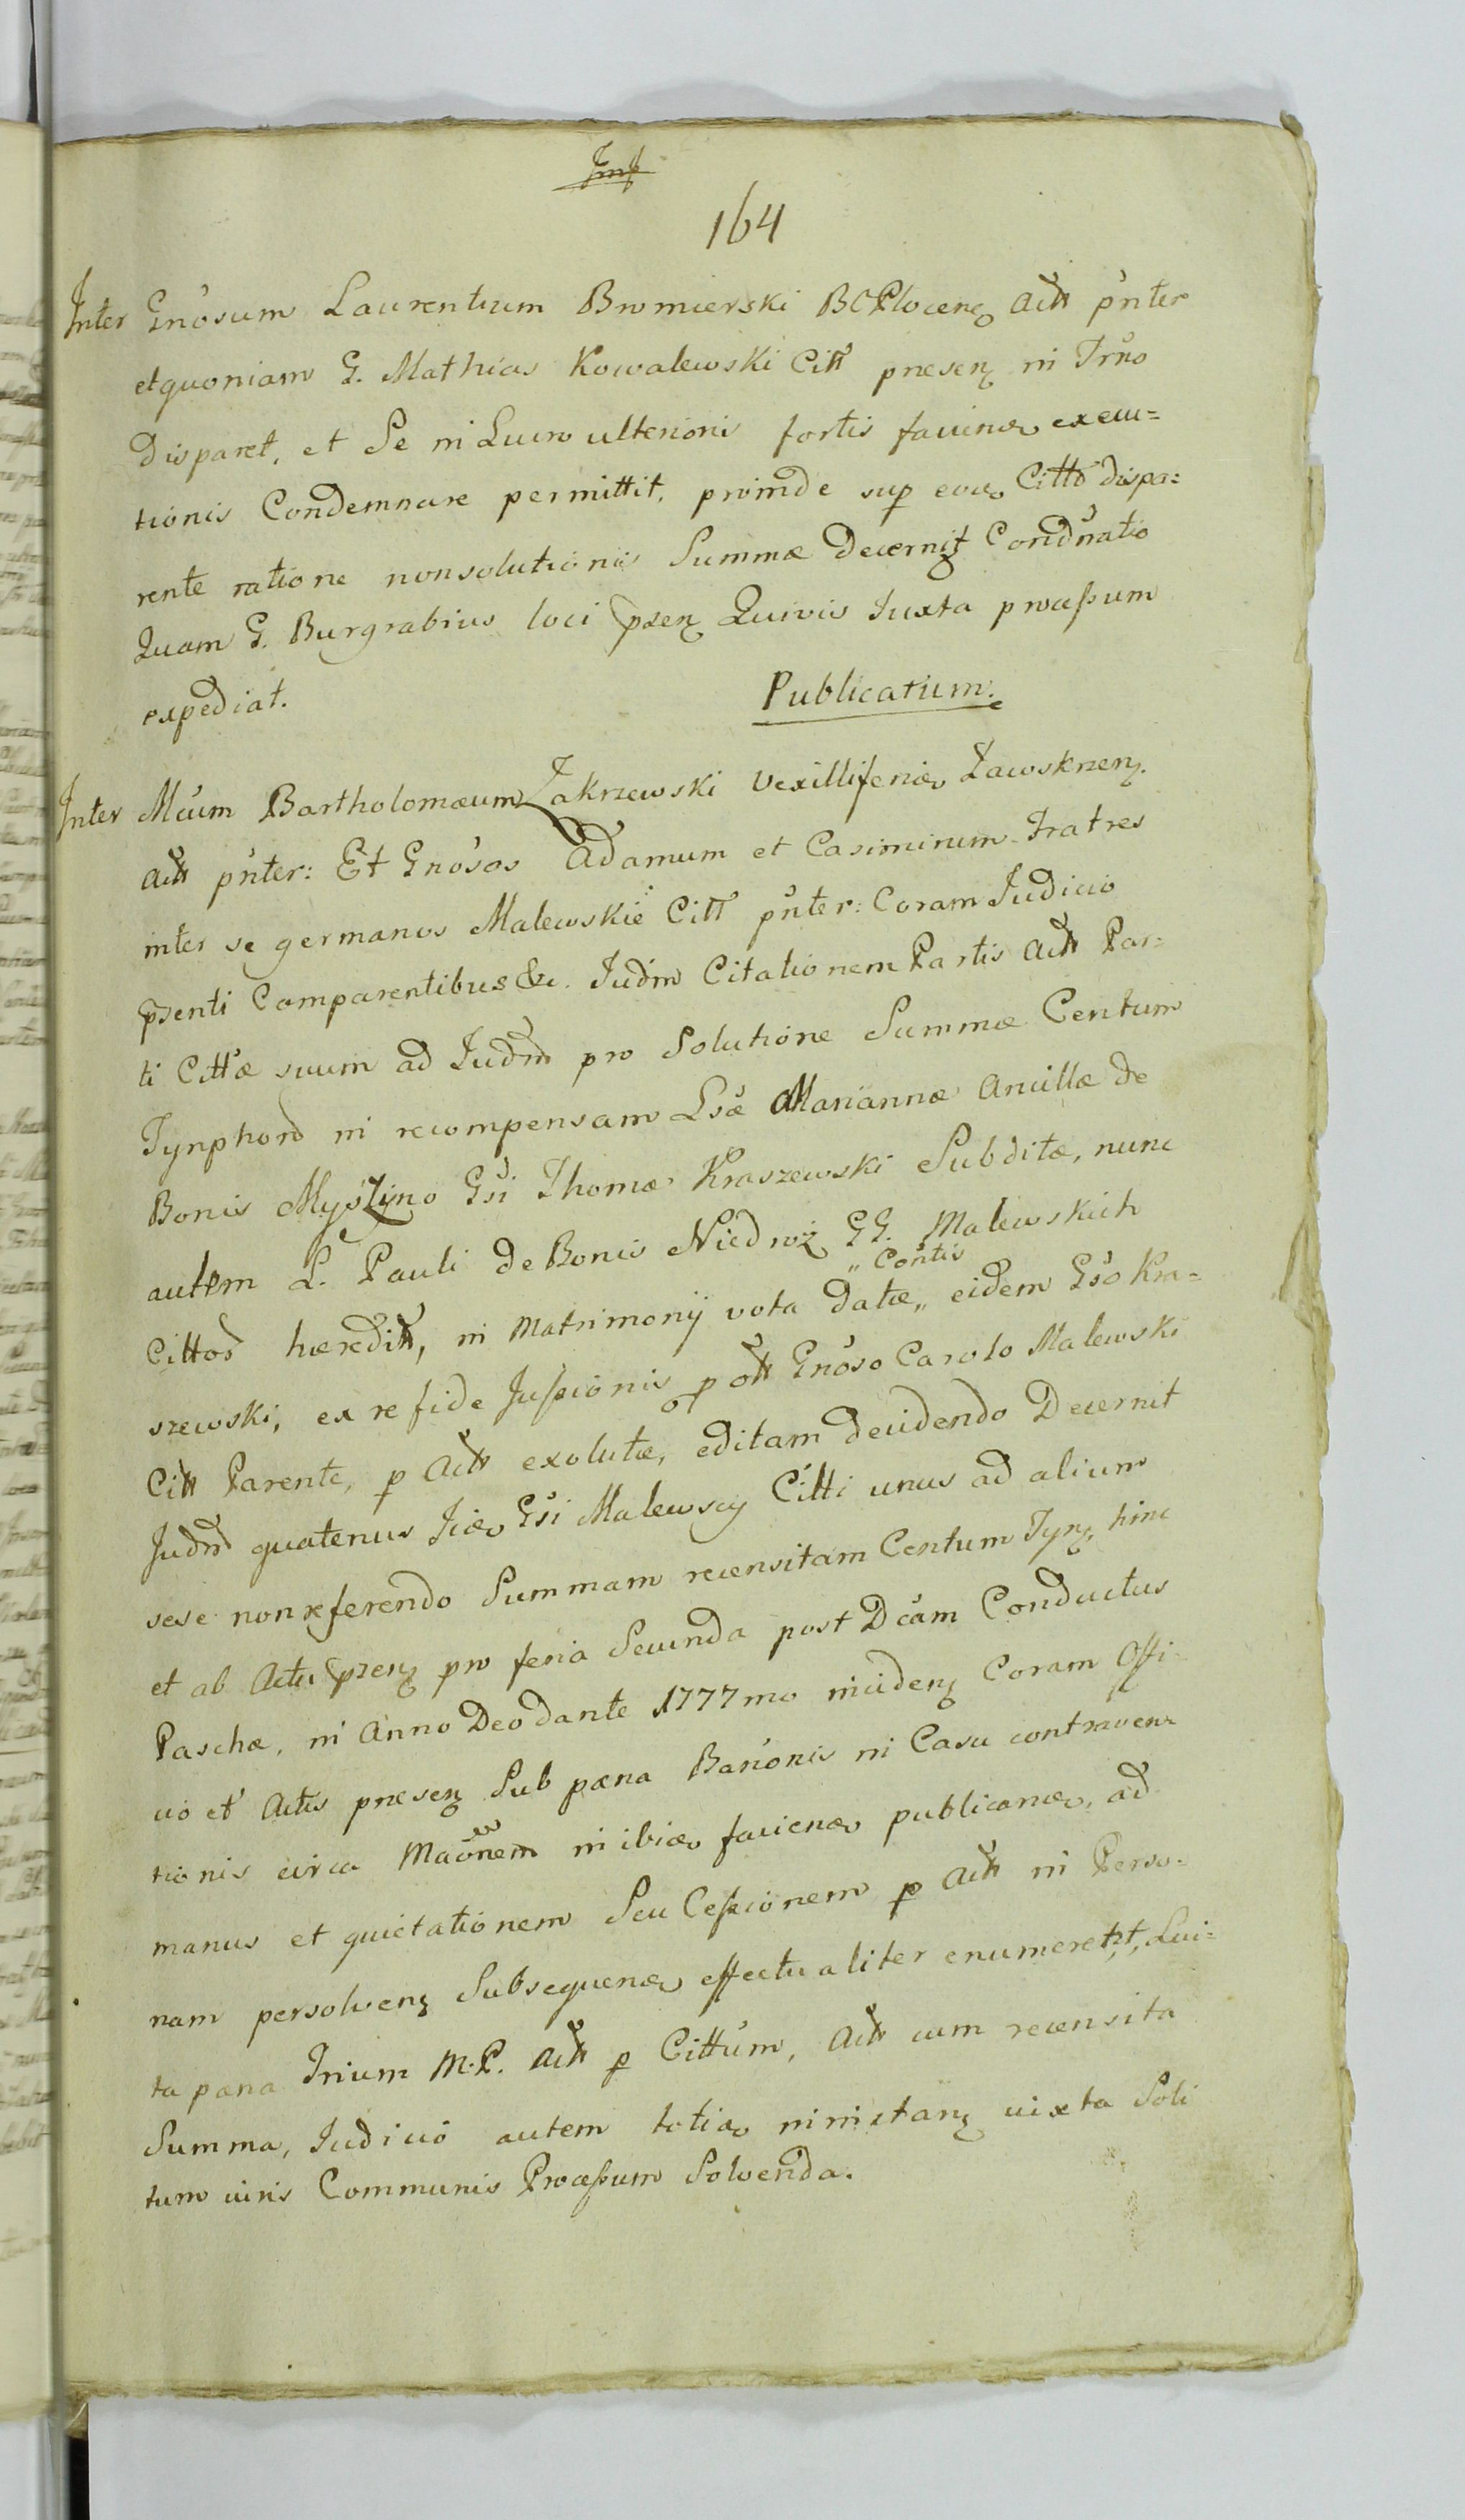 164
Inter Gnosum Laurentium Bromierski BCPlocen Actt pnter
etquoniam G. Mathias Kowalewski Citt presen in Trno
disparet, et Se in Lucro ulterioris fortis faciend execu=
tionis Condemnare permittit, proinde sup eod Citto dispa=
rente ratione nonsolutionis Summæ decernit Condnatio
Quam G. Burgrabius loci przen Quivis Iuxta processum
expediat. Publicatum.
Inter Mcum Bartholomæum Zakrzewski Vexilliferum Zawskrzen.
actt pnter: Et Gnosos Adamum et Casimirum Fratres
inter se germanos Malewskie Citt pnter: Coram Iudicio
przenti Comparentibus &c. Iudm Citationem Partis Actt Par=
ti Cittæ suum ad Iudm pro Solutione Summæ Centum
Tynphor in recompensam Lsæ Mariannæ Ancillæ de
Bonis Myślino Gsi Thomæ Kraszewski Subditæ, nunc
autem L. Pauli de Bonis Niedroż GG. Malewskich
Cittor hæredit, in Matrimonij vota datæ „ Contis „ eidem Gso Kra=
szewski, ex re fide Jussionis p ott Gnoso Carolo Malewski
Citt Parente, p Actt exolutæ, editam decidendo Decernit
Judm quatenus Gsi Malewscy Citti unus ad alium
sese non referendo Summam recensitam Centum Tyn, hinc
et ab Actu przen pro feria Secunda post Dcam Conductus
Paschæ, in Anno Deo dante 1777mo inciden Coram Offi
cio et Actis presen Sub pœna Banonis in Casu contraven
tionis circa Maonem in ibi faciend publicand, ad
manus et quietationem Seu Cessionem p Actt in Perso=
nam persolven Subsequend effectualiter enumeret, Lui=
ta pœna Trium M.P. Actt p Cittum, Actt cum recensita
Summa, Iudicio autem toties ninistan iuxta Soli
tum iuris Communis Processum Solvenda.